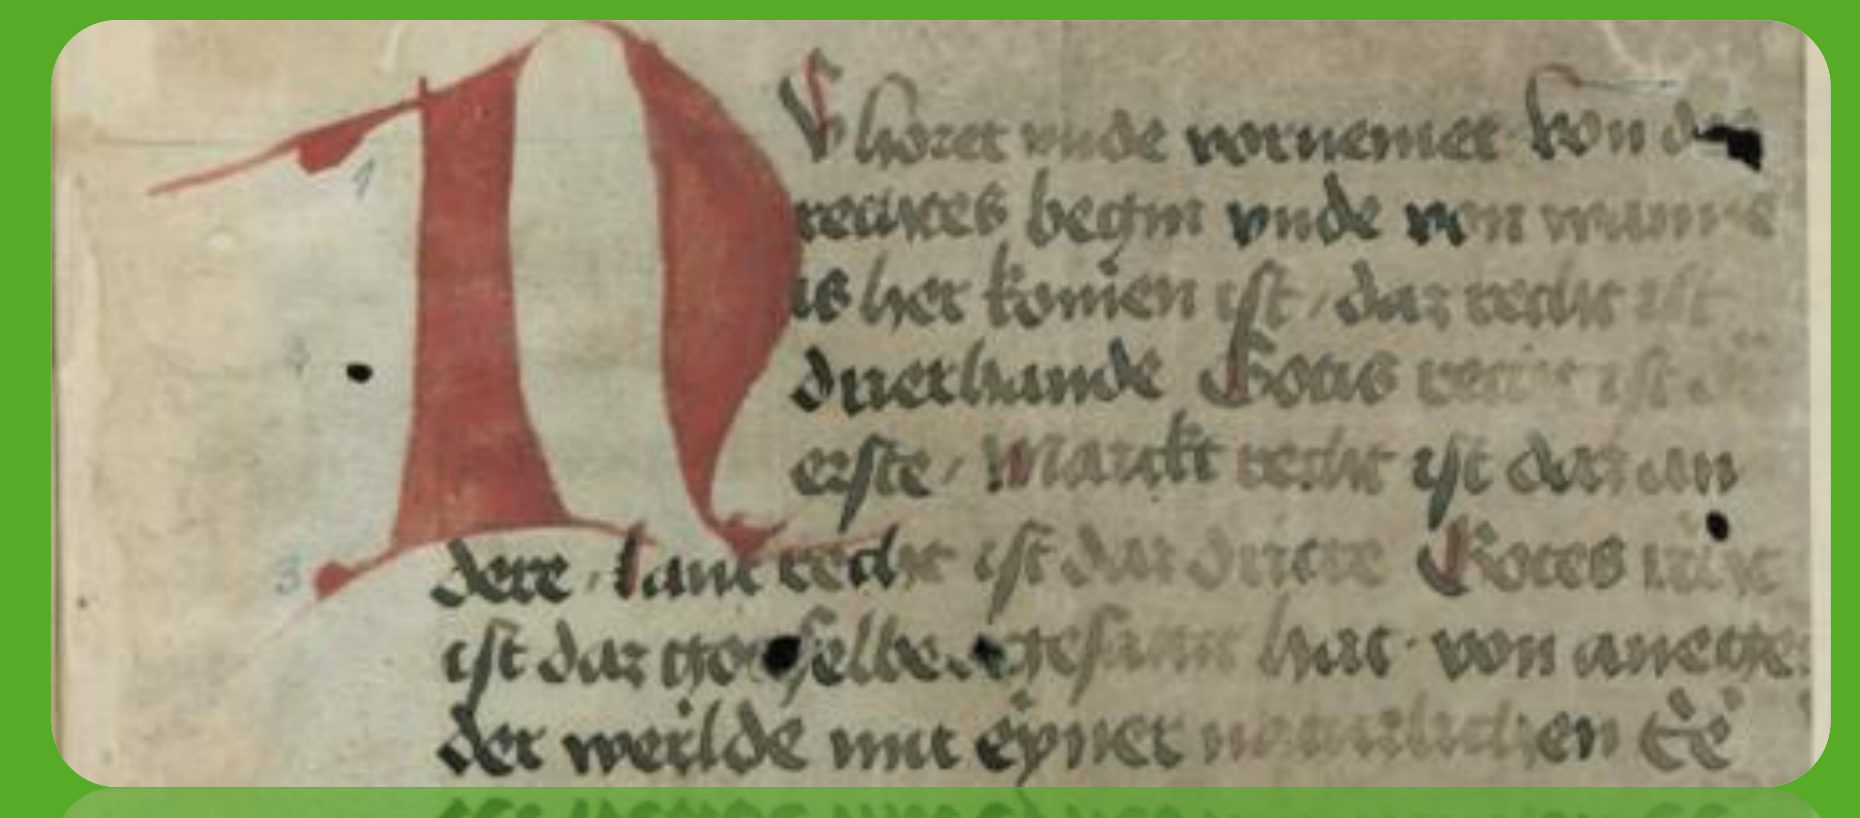 NV horet vnde vornemet von d
rechtes begin vnde von wann
is her komen ist / daz recht ist
drierhande Gotis recht ist
erste / Markt recht ist daz an
dere / lant recht ist daz dritte Gotes recht
ist daz got selbe gesatzt hat von anege
der werlde mit eyner naturlichen